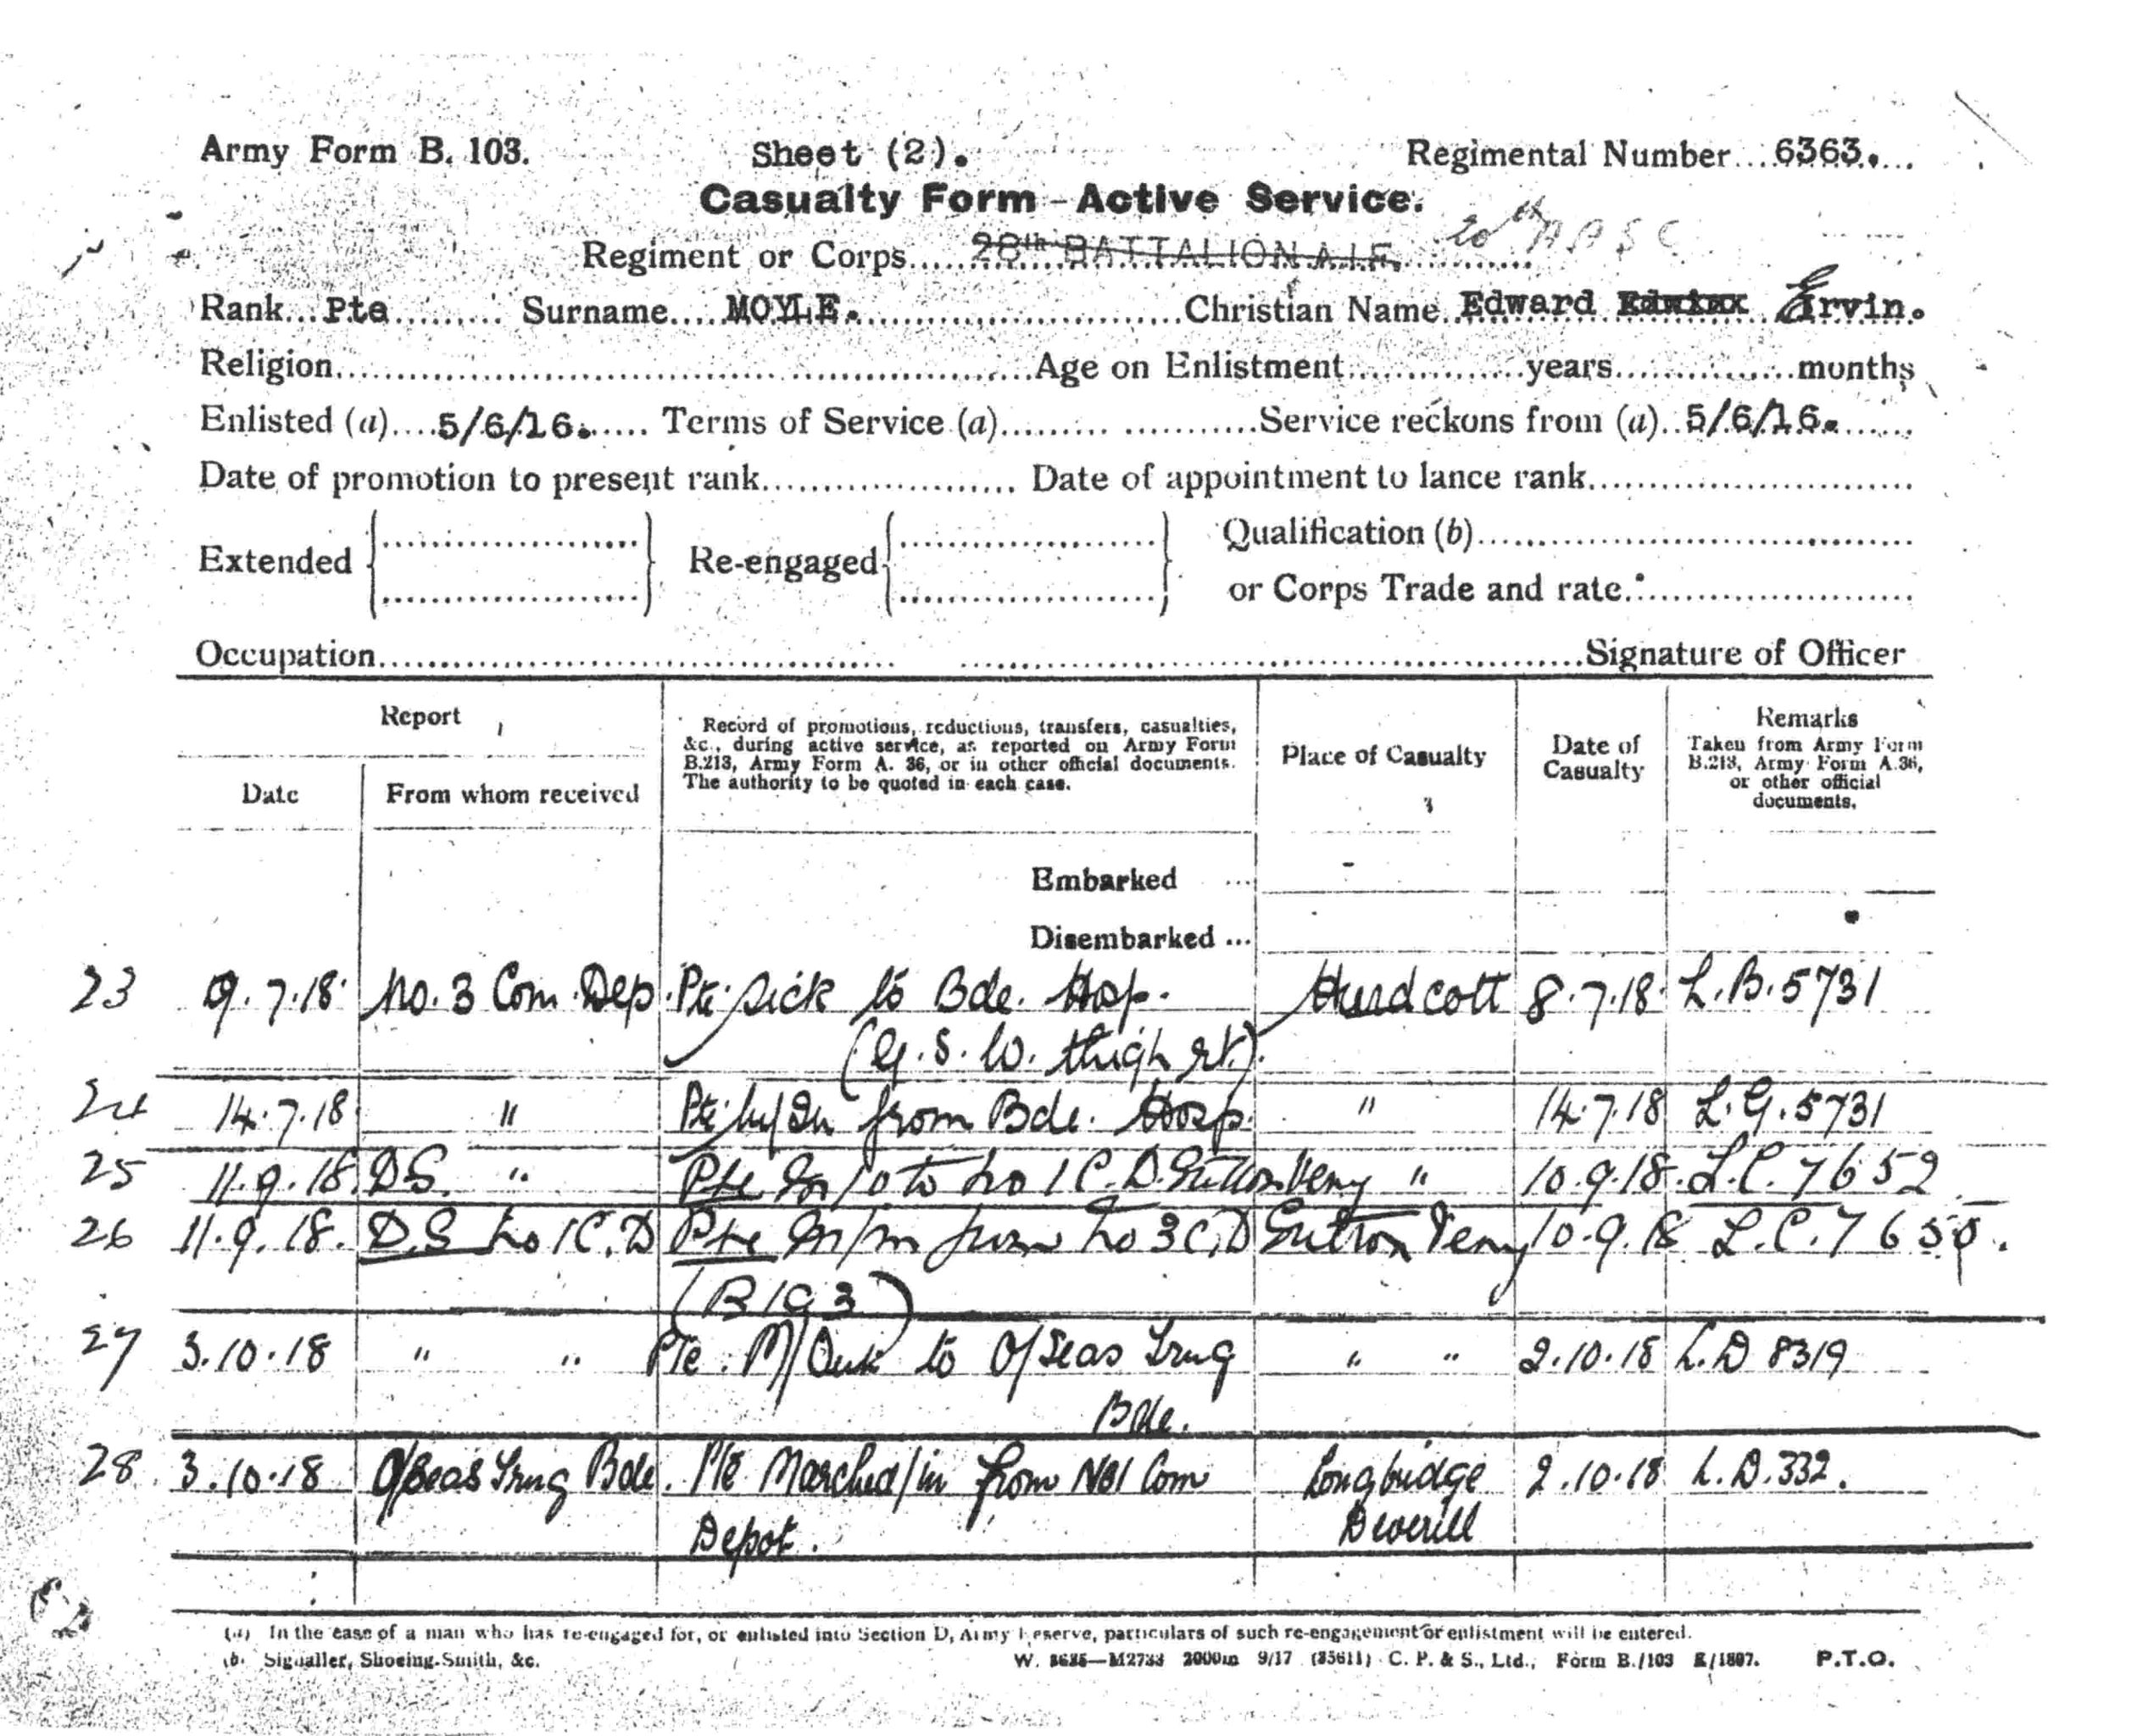 Army Form B. 103. Sheet (2). Regimental Number 6363.
Casualty Form - Active Service.
Regiment or Corps 28th BATTALION A.I.F. 20th A A S C
Rank Pte Surname MOYLE. Christian Name Edward Ervin.
Religion Age on Enlistment years months
Enlisted (a) 5/6/16. Terms of Service (a) Service reckons from (a) 5/6/16.
Date of promotion to present rank Date of appointment to lance rank
Extended Re-engaged Qualification (b)
or Corps Trade and rate
Occupation Signature of Officer
Report
Date From whom received
Record of promotions, reductions, transfers, casualties,
&c., during active service, as reported on Army Form
B.213, Army Form A. 36, or in other official documents.
The authority to be quoted in each case.
Place of Casualty
Date of
Casualty
Remarks
Taken from Army Form
B.213, Army Form A.36,
or other official
documents.
Embarked ...
Disembarked ...
23 9.7.18 No. 3 Com. Dep. Pte. Sick to Bde. Hosp. Hurdcott 8.7.18 L.B.5731
(G.S.W. thigh rt.)
24 14.7.18 " Pte from Bde. Hosp. " 14.7.18 L.G.5731
25 11.9.18 D.S. " Pte M/O to No 1 C.D. Sutton Veny " 10.9.18 L.C.7652
26 11.9.18. D.S No 1 C.D Pte M/in from No 3 C.D Sutton Veny 10.9.18 L.C.765
(B1a3)
27 3.10.18 " " Pte. M/Out to O/Seas Trng " " 2.10.18 L.D 8319
Bde.
28 3.10.18 O/Seas Trng Bde. Pte Marched/in from No1 Com Longbridge 2.10.18 L.D.332.
Depot. Deverill
(a) In the case of a man who has re-engaged for, or enlisted into Section D, Army Reserve, particulars of such re-engagement or enlistment will be entered.
(b. Signaller, Shoeing-Smith, &c. W. M2733 2000m 9/17 (35611) C. P. & S., Ltd., Form B./103 E/1807. P.T.O.